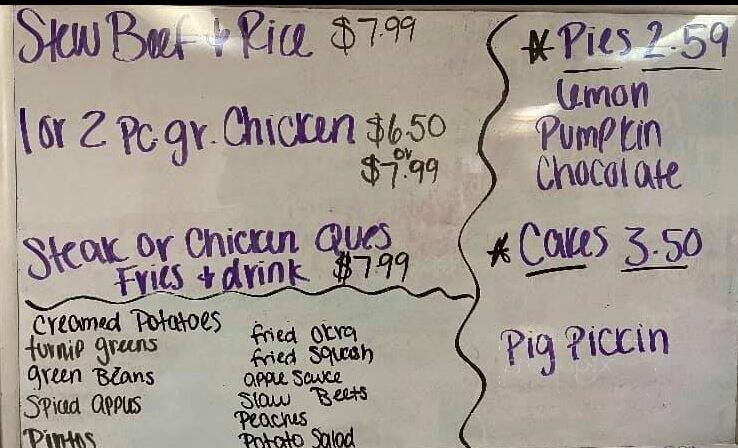 Stew Beef & Rice $7.99
1 or 2 pc gr. Chicken $6.50
or
$7.99
Steak or Chicken Ques
Fries + drink $7.99
creamed Potatoes
turnip greens
green Beans
Spiced apples
Pintos
fried okra
fried squash
apple sauce
Slaw Beets
Peaches
Potato Salad
* Pies 2.59
Lemon
Pumpkin
Chocolate
* Cakes 3.50
Pig Pickin